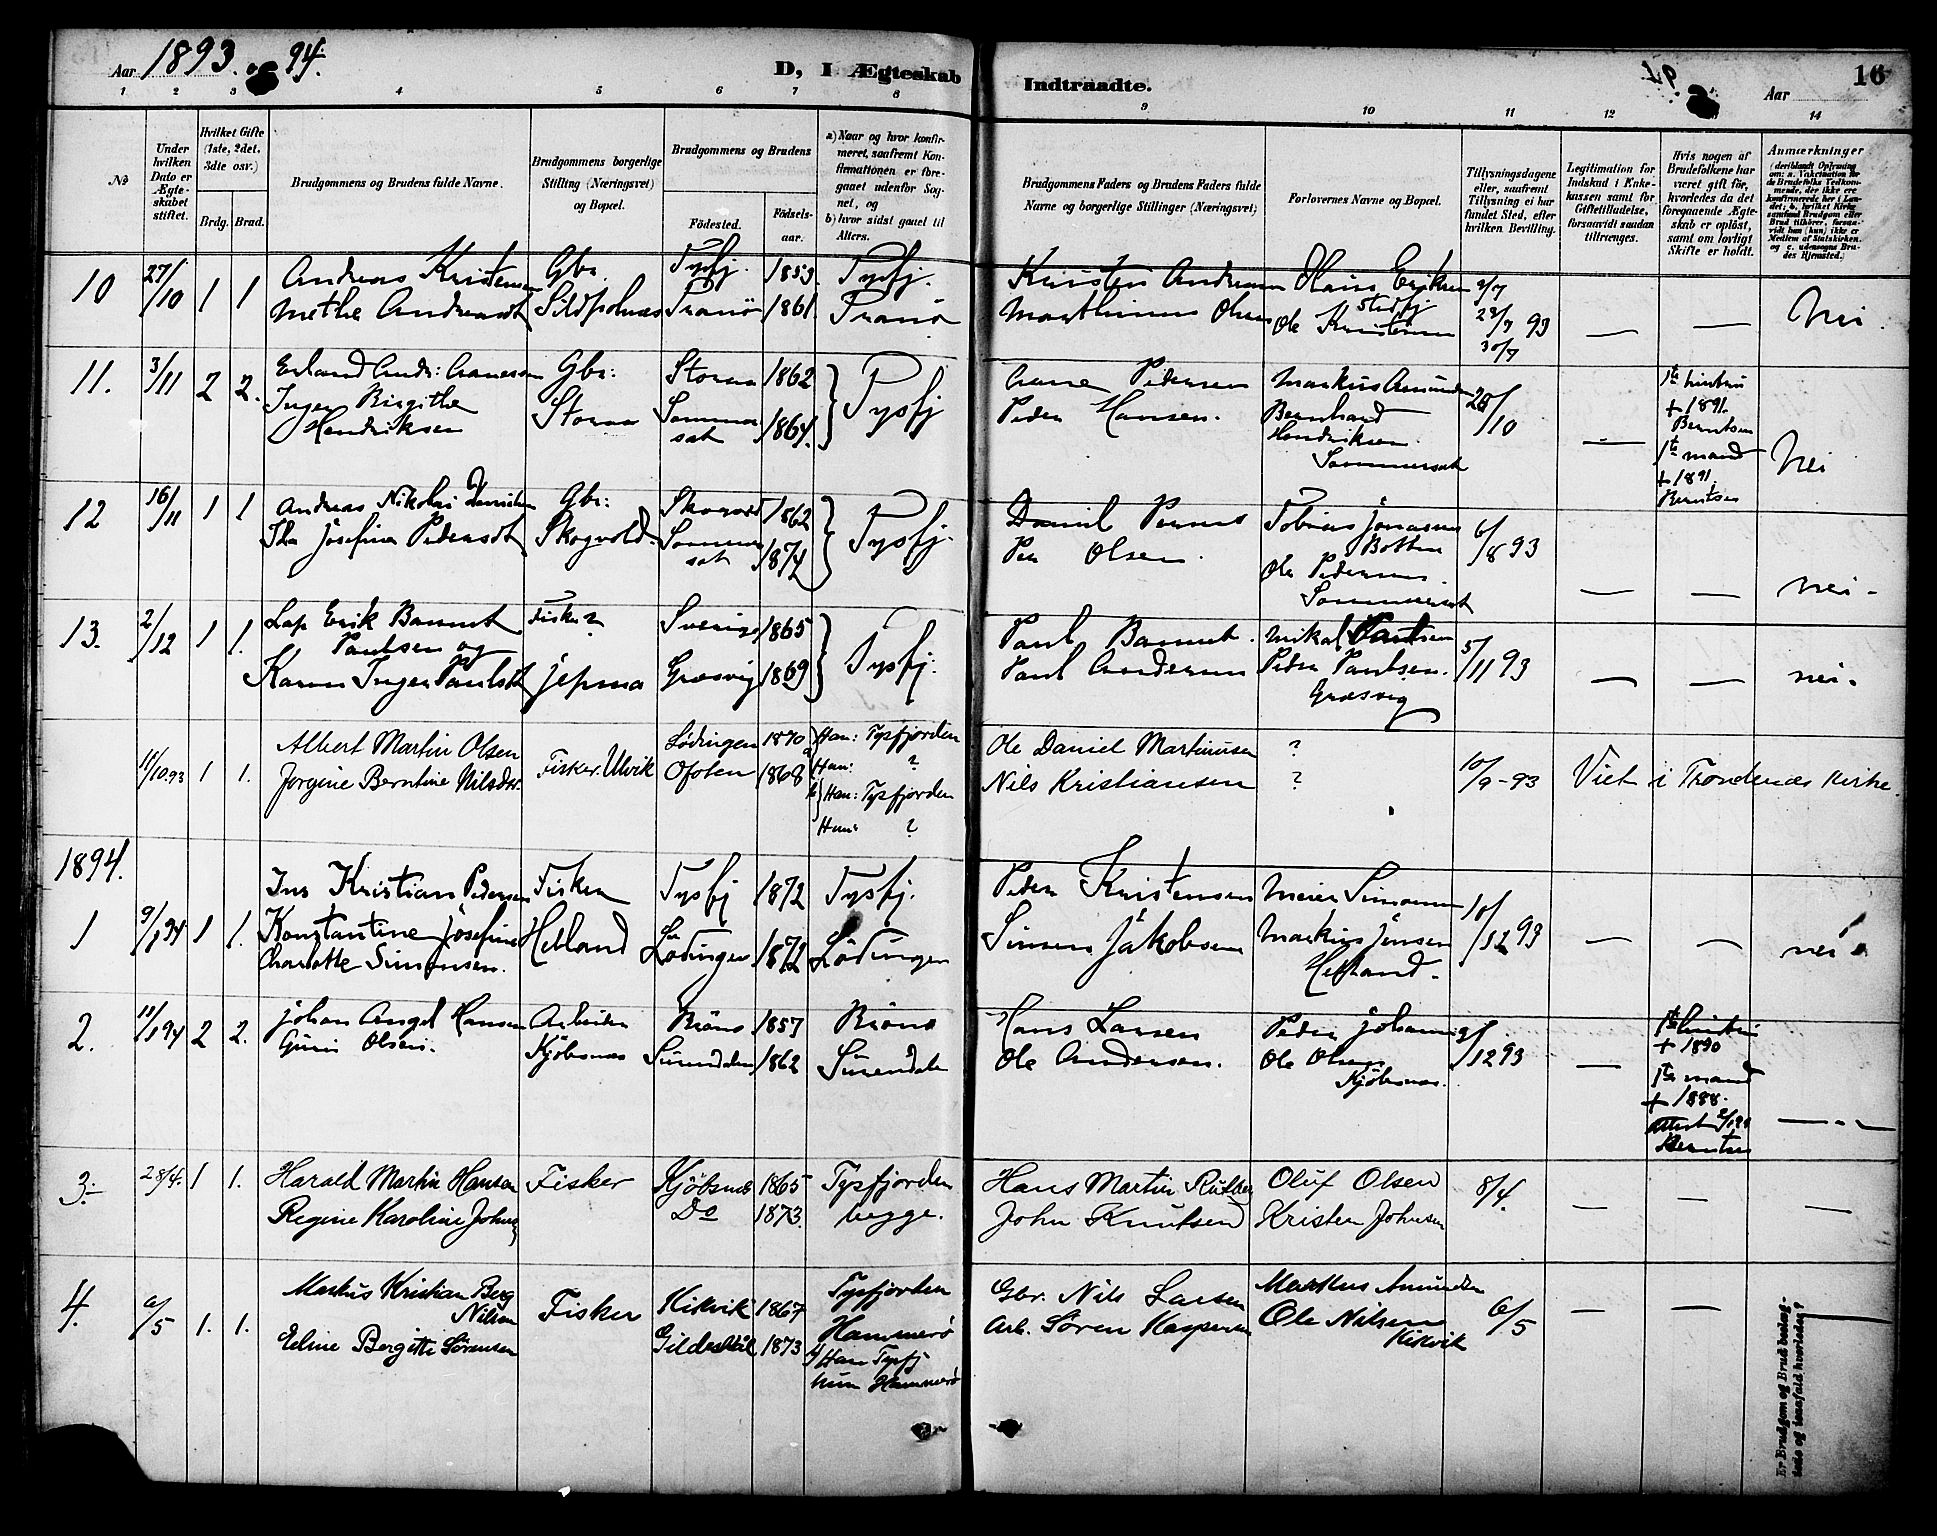 Aar 1893. og 94.
D, I Ægteskab Indtraadte.
94. Aar 16
1 2 3 4 5 6 7 8 9 10 11 12 14
№
Under hvilken Dato er Ægteskabet stiftet.
Hvilket Gifte (1ste, 2det, 3die osv.)
Brdg. Brud.
Brudgommens og Brudens fulde Navne.
Brudgommens borgerlige Stilling (Næringsvei) og Bopæl.
Brudgommens og Brudens
Födested. Födselsaar.
a) Naar og hvor konfirmeret, saafremt Konfirmationen er foregaaet udenfor Sognet, og
b) hvor sidst gaaet til Alters.
Brudgommens Faders og Brudens Faders fulde Navne og borgerlige Stillinger (Næringsvei)
Forlovernes Navne og Bopæl.
Tillysningsdagene eller, saafremt Tillysning ei har fundet Sted, efter hvilken Bevilling.
Legitimation for Indskud i Enkekassen samt for Giftetilladelse, forsaavidt saadan tiltrænges.
Hvis nogen af Brudefolkene har været gift för, hvorledes da det foregaaende Ægteskab er oplöst, samt om lovligt Skifte er holdt.
Anmærkninger
10 27/10 1 1 Andreas Kristensen Gbr. Tysfj. 1859 Tysfj. Kristen Andreassen Hans Eriksen 2/7
Methe Andreasdt Sildpolnes Tranö 1861. Tranö Marthinus Olsen Ole Kristensen Stedfj 23/7 93 — — Nei.
30/7
11. 3/11 2 2. Erland Andr: Aronessen Gbr: Storaa 1862 Tysfj Arone Pedersen Markus Amundsen 28/10 — 1te hustru
Inger Birgithe Storaa Sommerset 1864. Peder Hansen. Bernhard + 1891.
Hendriksen Hendriksen Berntsen
Sommerset 1te mand Nei
+ 1891,
Berntsen
12 16/11 1 1 Andreas Nikolai Danielsen Gbr: Skogvold 1862 Tysfj. Daniel Tobias Jonassen 6/8 93
Ida Josefine Pedersdt Skogvold. Sommerset 1874 Per Olsen. Botten
Ole Pedersen.
Sommerset — — nei -
13. 2/12 1 1. Lap Erik Bannet Fisker Sverige 1865 Tysfj. Paul Bannet. Mikal Paulsen 5/11 93
Paulsen og
Karen Inger Paulsdt Græsvig 1869 Paul Andersen Peder Paulsen. — — nei.
Græsvig
11/10.93 1 1. Albert Martin Olsen Fisker. Ulvik Lødingen 1870 a) Han: Tysfjorden Ole Daniel Martinusen ? 10/9-93 Viet i Trondenæs kirke.
Jørgine Berntine Nilsdtr. Ofoten 1868 Hun: ? Nils Kristiansen ?
b) Han: Tysfjorden
Hun: ?
1894.
1 9/1 94 1 1. Jens Kristian Pedersen Fisker Tysfj 1872 Tysfj. Peder Kristensen Meier Simonsen 10/12 93
Konstantine Josefine Helland Lödingen 1872 Lödingen Simon Jakobsen Markus Jensen — — nei.
Charlotte Simonsen. Helland.
2. 11/1 94 2 2. Johan Angel Hansen Arbeider Brönö 1857 Brönö Hans Larsen Peder Johansen /12 93 — 1te hustru
Guri Olsen. Kjöbsnes Surendalen 1862 Surendalen Ole Andersen. Ole Olsen + 1890
Kjöbsnes. 1te mand
+ 1888.
attest
Berntsen
3. 28/4. 1 1. Harald Martin Hansen Fisker Kjöbsnæs 1865 Tysfjorden Hans Martin Oluf Olsen 8/4. — — —
Regine Karoline Johns Do 1873. begge. John Knutsen Kristen Johnsen
4. 6/5 1. 1. Markus Kristian Berg Nilsen Fisker Kikvik 1867 Tysfjorden Gbr. Nils Larsen Markus Amundsen 6/5 — — —
Eline Bergitte Sörensen Gildeskål 1873 Hammerö Arb. Sören Kaspersen Ole Nilsen
b) Han Tysfj Kikvik
hun Hammerö
Er Brudgom og Brud beslægtede og i saafald hvorledes?